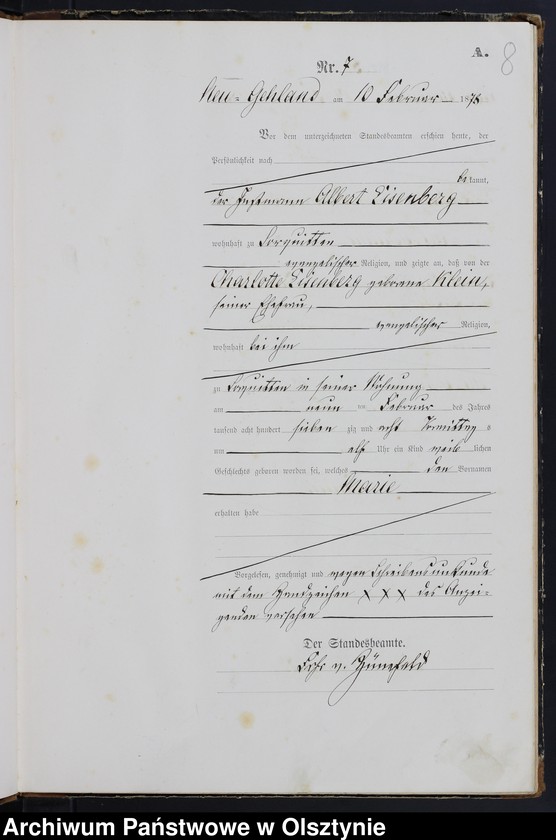 A.
8
Nr. 7.
Neu-Gehland am 10 Februar 1878
Vor dem unterzeichneten Standesbeamten erschien heute, der
Persönlichkeit nach
bekannt,
der Instmann Albert Eisenberg
wohnhaft zu Sorquitten
evangelischer Religion, und zeigte an, daß von der
Charlotte Eisenberg geborene Klein,
seiner Ehefrau,
evangelischer Religion,
wohnhaft bei ihm
zu Sorquitten in seiner Wohnung
am neun ten Februar des Jahres
tausend acht hundert sieben zig und acht Vormittags
um elf Uhr ein Kind weib lichen
Geschlechts geboren worden sei, welches den Vornamen
Marie
erhalten habe
Vorgelesen, genehmigt und wegen Schreibensunkunde
mit dem Handzeichen XXX des Anzei-
genden versehen
Der Standesbeamte.
Archiwum Państwowe w Olsztynie